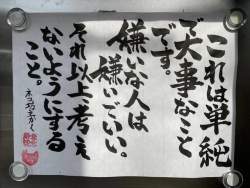 これは単純
で大事なこと
です。
嫌いな人は
嫌いでいい。
それ以上、考え
ないようにする
こと。